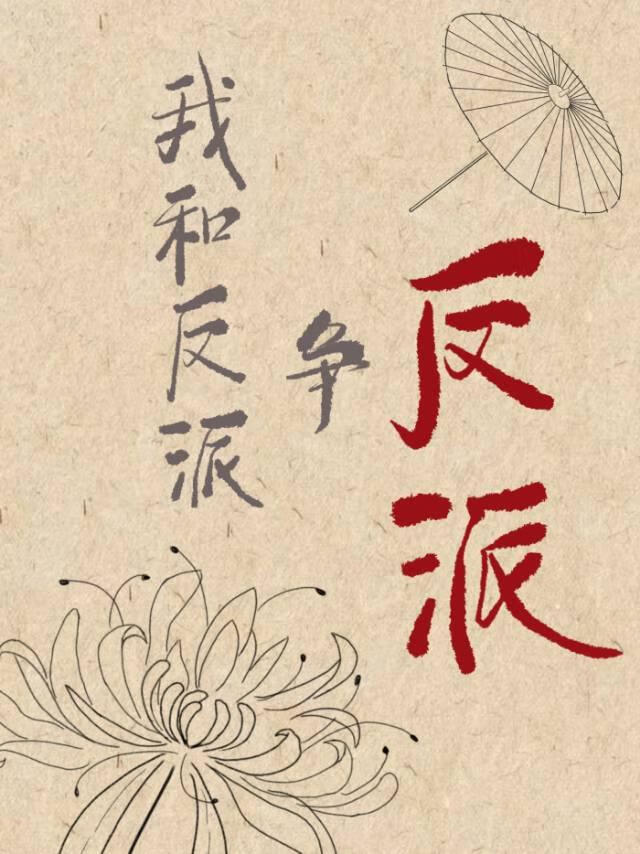 我和反派
争
反派